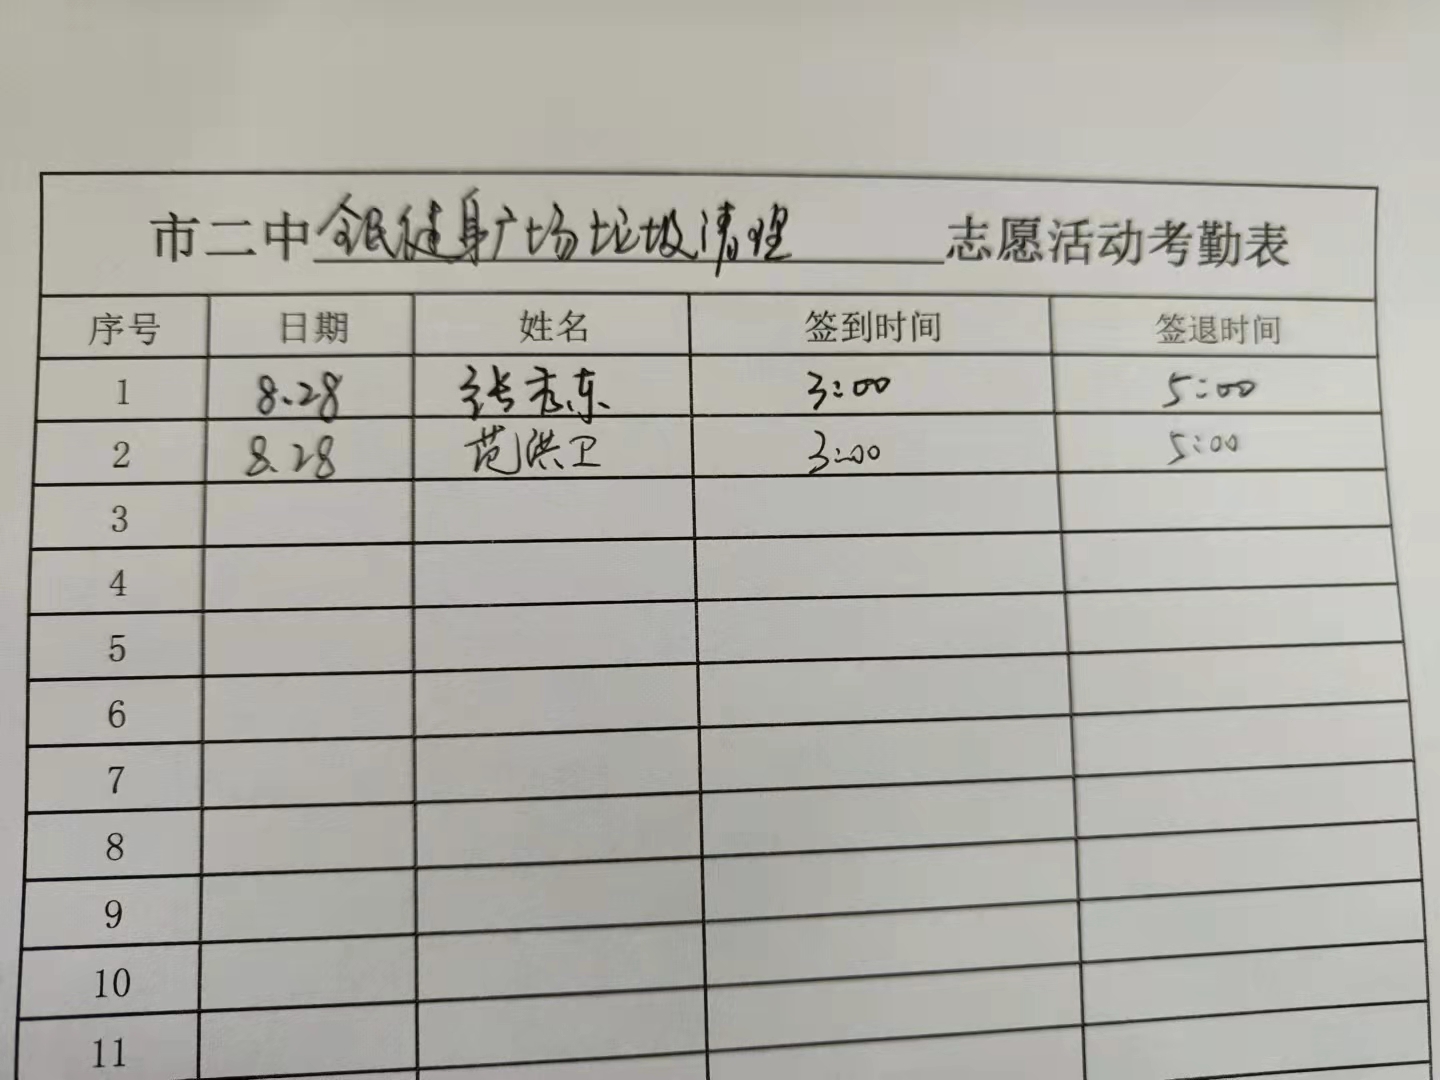 市二中全民健身广场垃圾清理志愿活动考勤表
序号 日期 姓名 签到时间 签退时间
1 8.28 张秀东 3:00 5:00
2 8.28 范洪卫 3:00 5:00
3
4
5
6
7
8
9
10
11